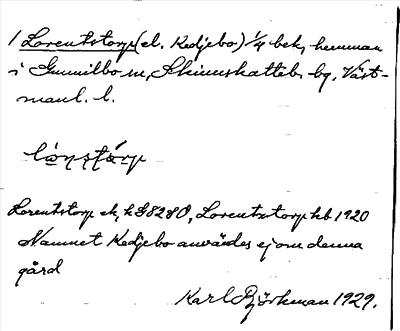 1 Lorentstorp (el. Kedjebo) 1/4 bek, hemman
i Gunnilbo sn, Skinnskattebg. bg, Väst-
manl. l.
lo̱nstårp
Lorentstorp ek, kG8280, Lorentstorp hb 1920
Namnet Kedjebo användes ej om denna
gård
Karl Björkman 1929.